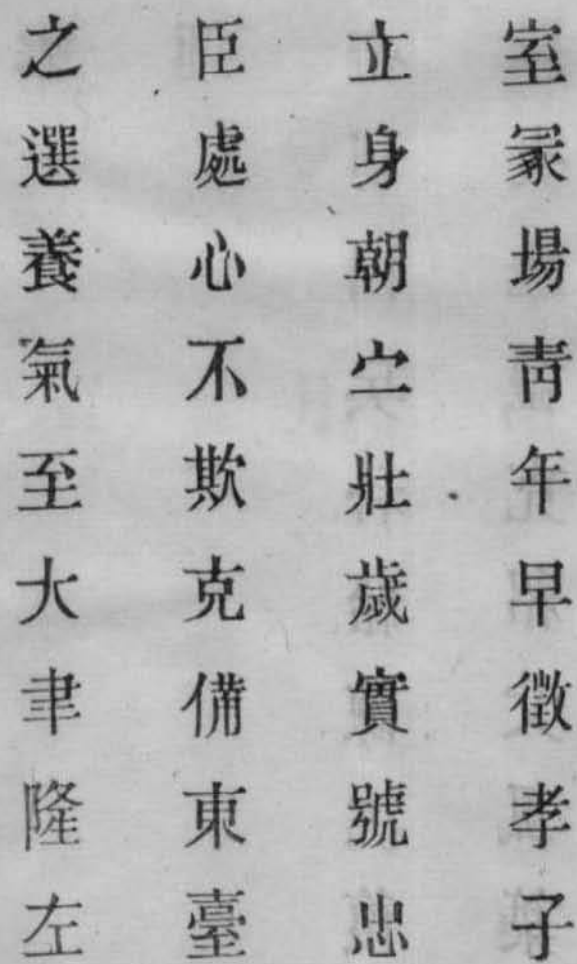 室冡場青年早徵孝子
立身朝宁壯歲實號忠
臣處心不欺克備東臺
之選養氣至大聿隆左